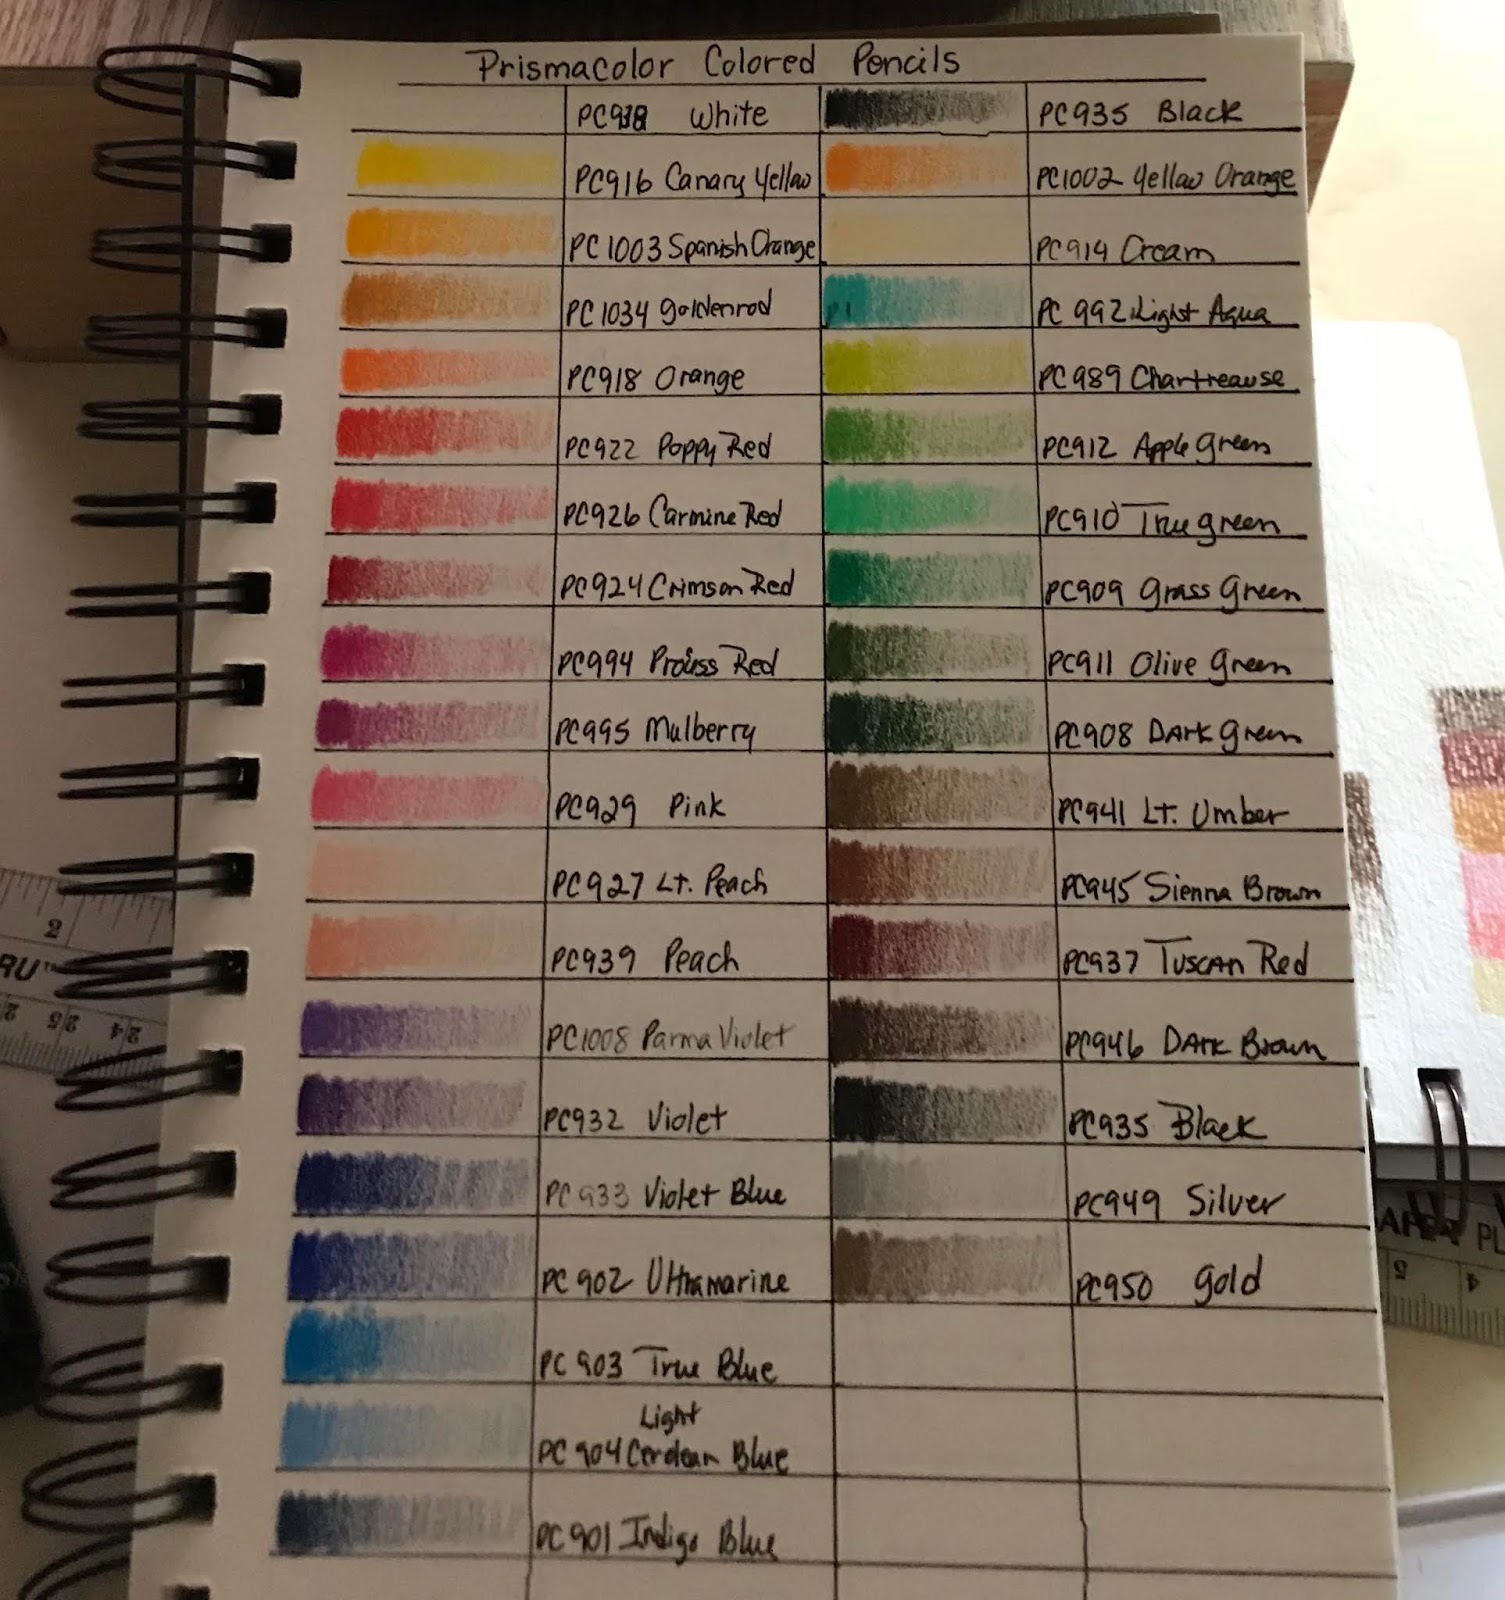 Prismacolor Colored Pencils
PC938 White
PC935 Black
PC916 Canary Yellow
PC1002 Yellow Orange
PC1003 Spanish Orange
PC914 Cream
PC1034 goldenrod
PC 992 Light Aqua
PC918 Orange
PC989 Chartreause
PC922 Poppy Red
PC912 Apple green
PC926 Carmine Red
PC910 True green
PC924 Crimson Red
PC909 Grass Green
PC994 Red
PC911 Olive Green
PC995 Mulberry
PC908 DArk green
PC929 Pink
PC941 LT. Umber
PC927 LT. Peach
PC945 Sienna Brown
PC939 Peach
PC937 TUSCAN Red
PC1008 Parma Violet
PC946 DArk Brown
PC932 Violet
PC935 Black
PC 933 Violet Blue
PC949 Silver
PC 902 Ultramarine
PC950 gold
PC 903 True Blue
Light
PC 904 Cerulean Blue
PC 901 Indigo Blue
2
RU™
25 24
5 4